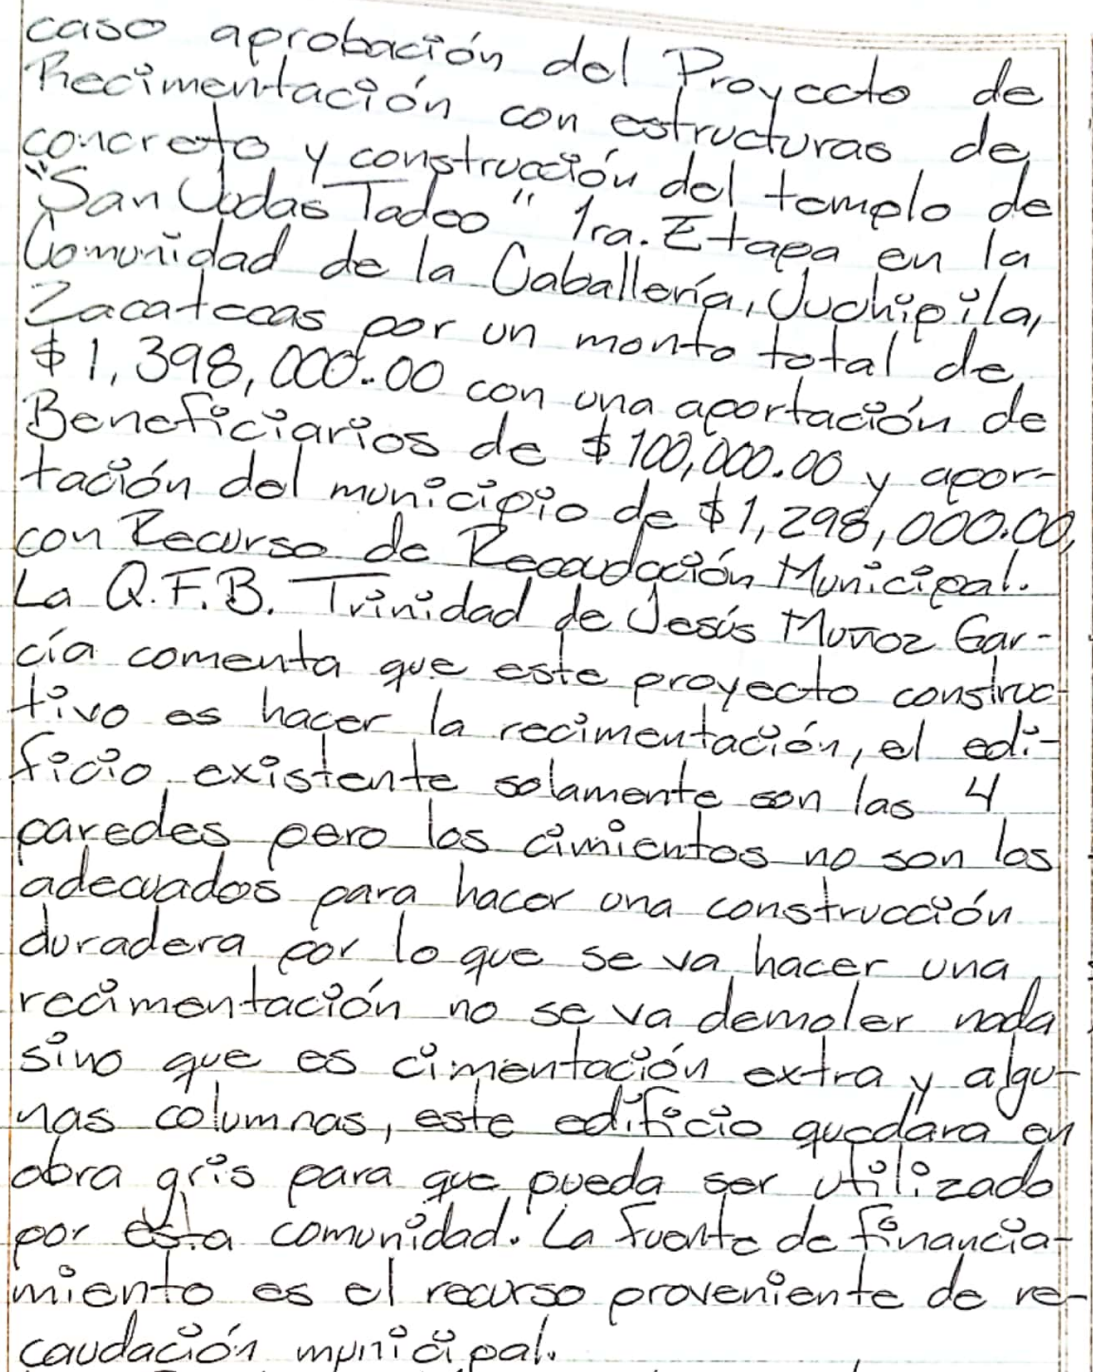 caso aprobación del Proyecto de
Recimentación con estructuras de
concreto y construcción del templo de
"San Judas Tadeo" 1ra. Etapa en la
Comunidad de la Caballería, Juchipila,
Zacatecas por un monto total de
$1,398,000.00 con una aportación de
Beneficiarios de $100,000.00 y apor-
tación del municipio de $1,298,000.00,
con Recurso de Recaudación Municipal.
La Q.F.B. Trinidad de Jesús Muñoz Gar-
cía comenta que este proyecto construc-
tivo es hacer la recimentación, el edi-
ficio existente solamente son las 4
paredes pero los cimientos no son los
adecuados para hacer una construcción
duradera por lo que se va hacer una
recimentación no se va demoler nada
sino que es cimentación extra y algu-
nas columnas, este edificio quedara en
obra gris para que pueda ser utilizado
por esta comunidad. La fuente de financia-
miento es el recurso proveniente de re-
caudación municipal.